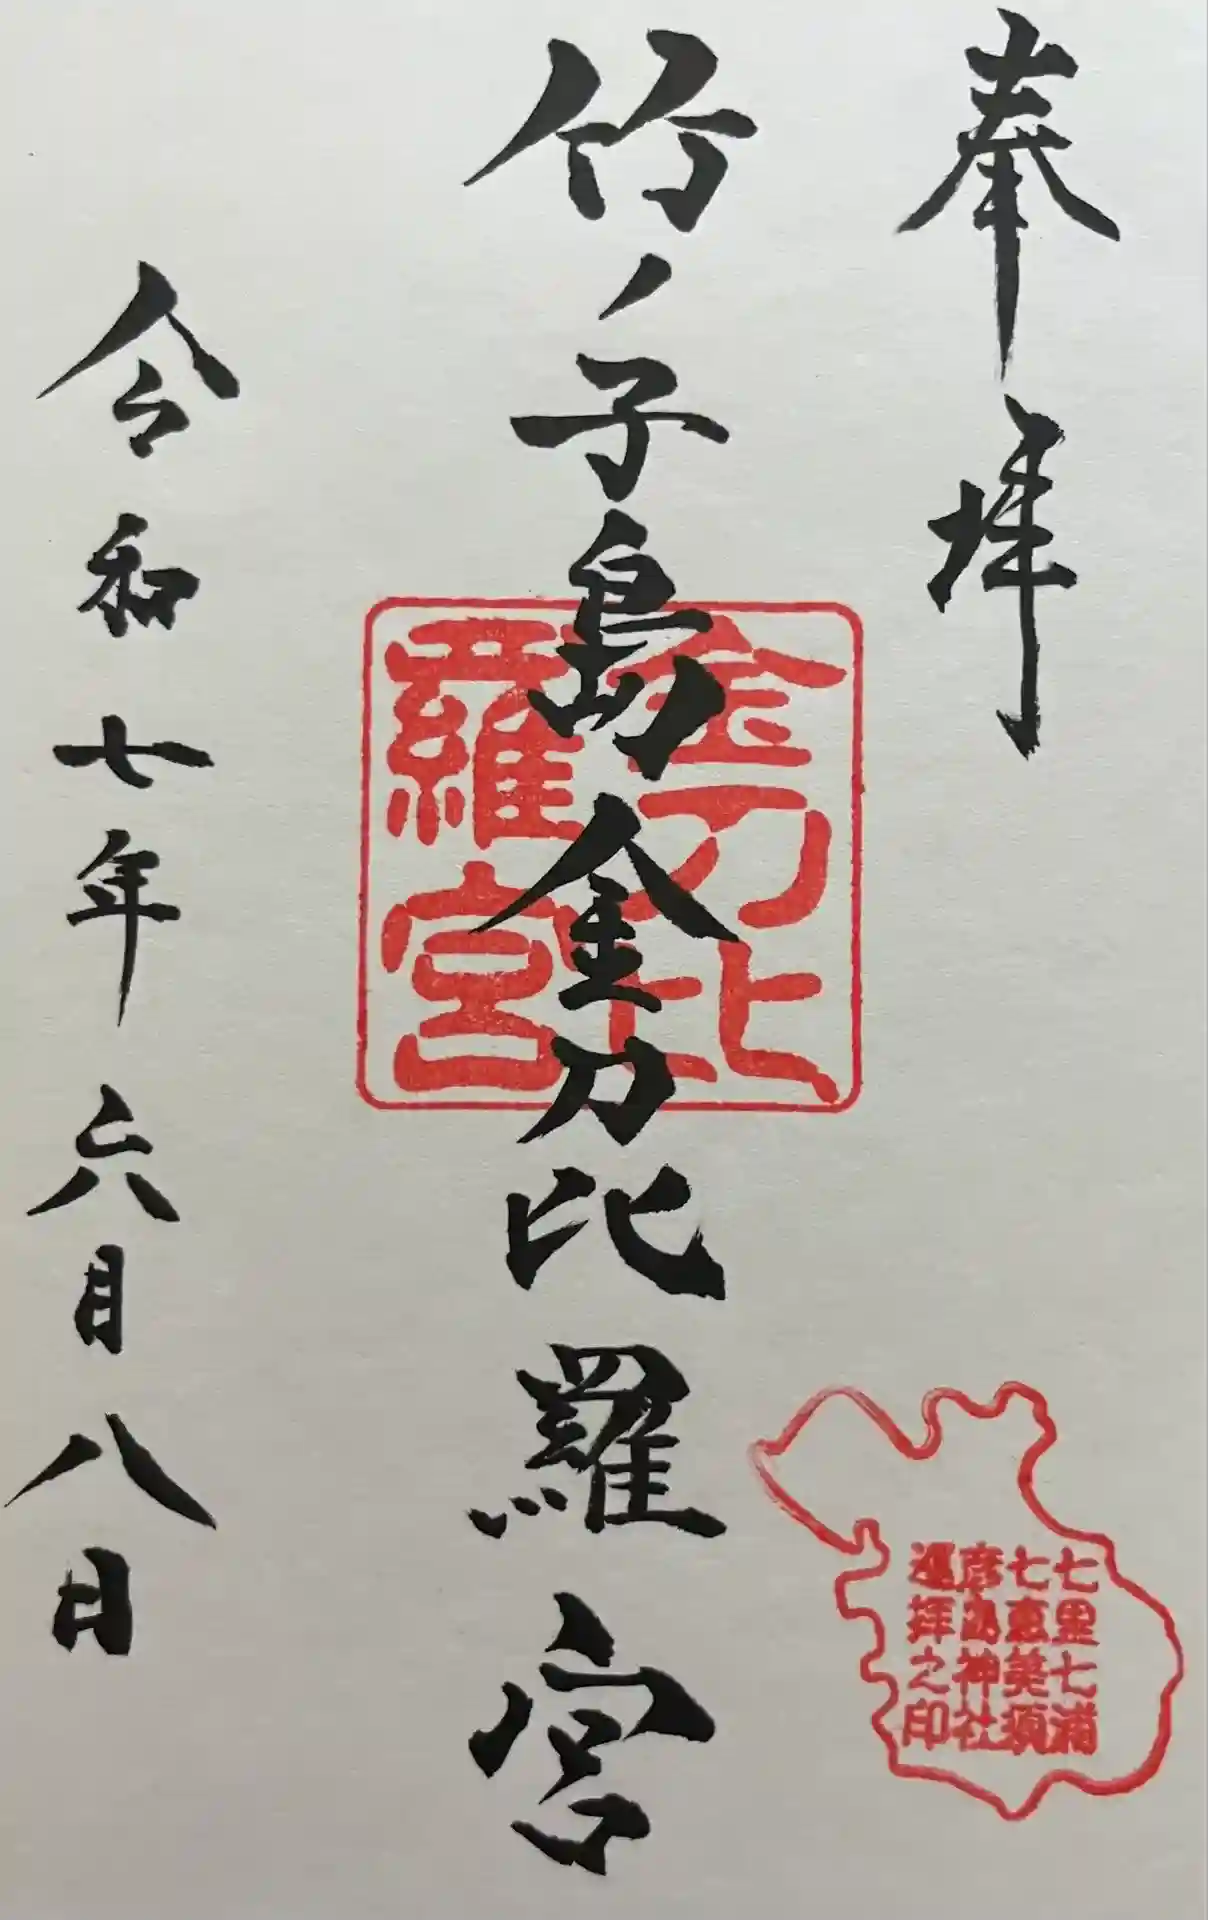 奉拝
竹ノ子島金刀比羅宮
金刀比
羅宮
七里七浦
七恵美須
彦島神社
遥拝之印
令和七年六月八日